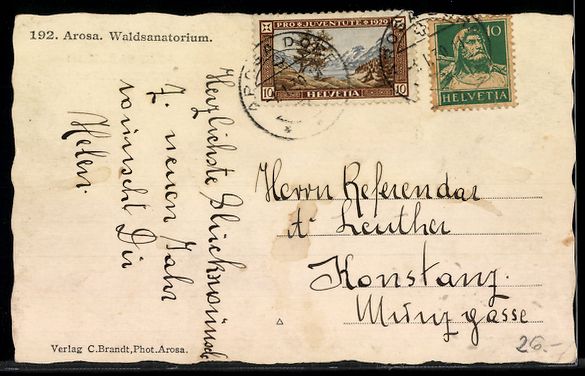 192. Arosa. Waldsanatorium.
Herzlichste Glückwünsche
z. neuen Jahr
wünscht Dir
Helen.
PRO JUVENTUTE 1929
10 HELVETIA 10
10
HELVETIA
AROSA DORF
Herrn Referendar
A. Leuther
Konstanz.
Münzgasse
Verlag C. Brandt, Phot. Arosa.
26.-